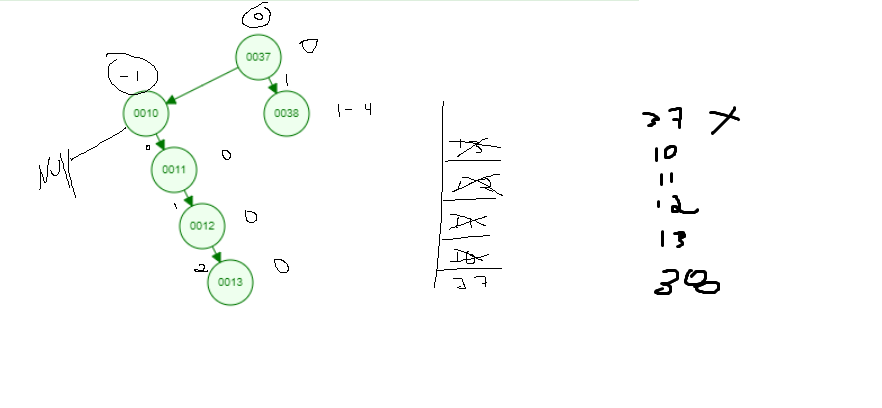 0
0037 0
-1
1
0010 0038 1-4
Null
0 0011 0
1 0012 0
2 0013 0
37
37 X
10
11
12
13
38